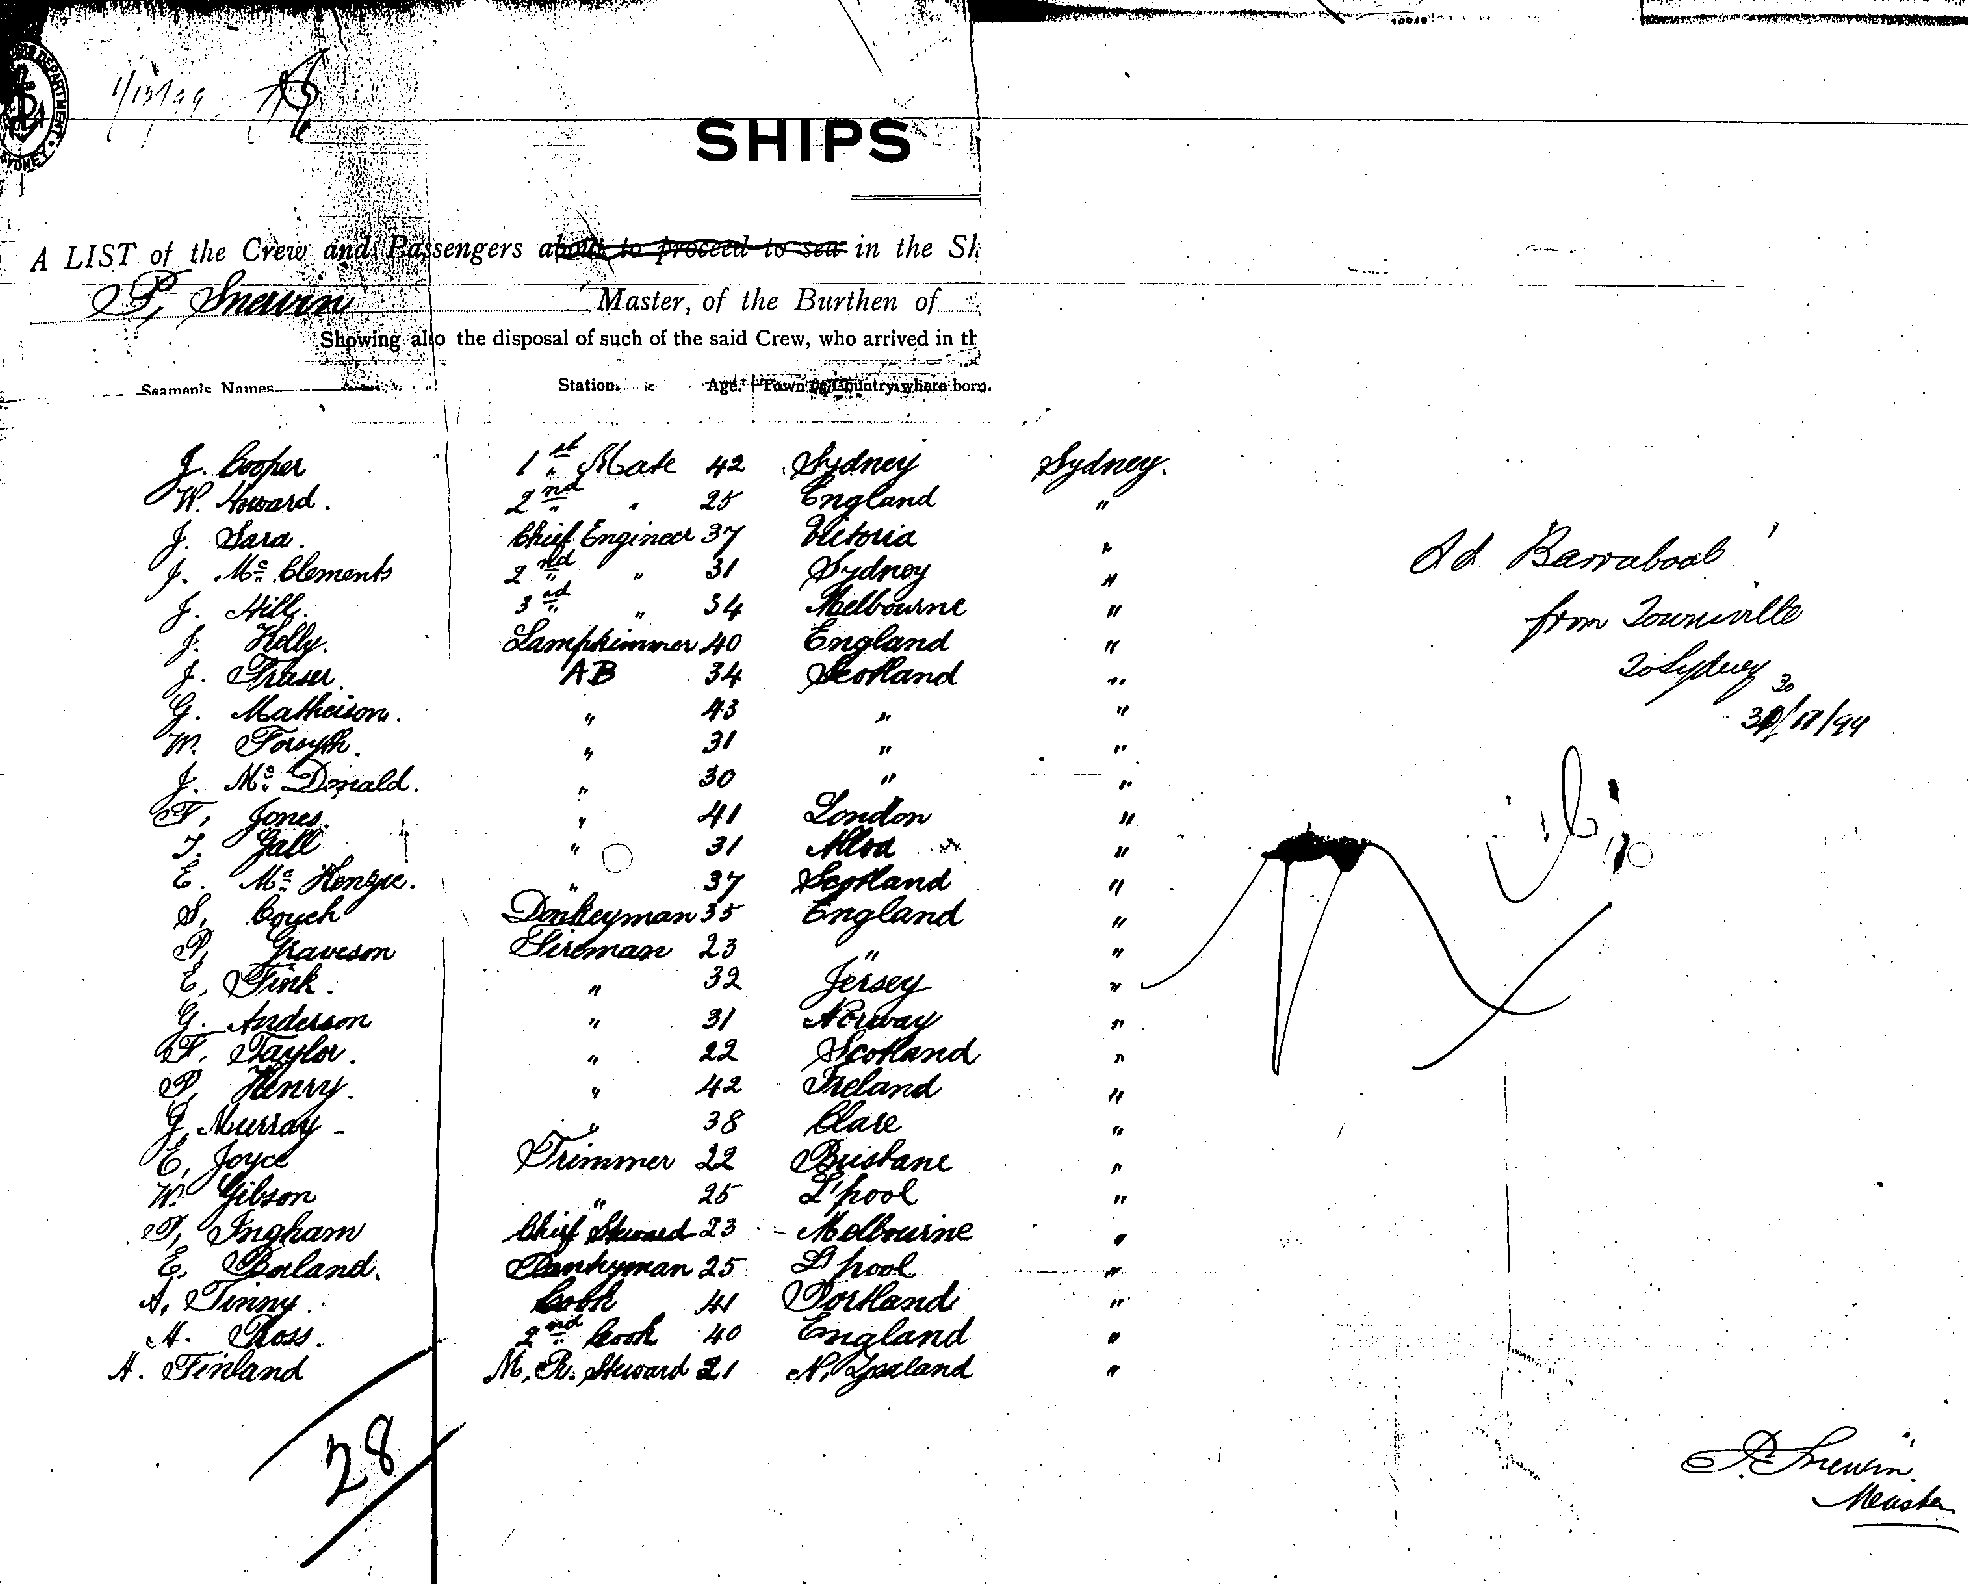 DEPARTMENT
SYDNEY
SHIPS
A LIST of the Crew and Passengers about to proceed to sea in the Sh
P. Snewin Master, of the Burthen of
Showing also the disposal of such of the said Crew, who arrived in th
Seamen's Names Station. Age. Town or Country where born.
J. Cooper 1st Mate 42 Sydney Sydney.
W. Howard. 2nd " 25 England "
J. Sara. Chief Engineer 37 Victoria "
J. Mc Clements 2nd " 31 Sydney "
J. Hill. 3rd " 34 Melbourne "
J. Kelly. Lamptrimmer 40 England "
J. Fraser. AB 34 Scotland "
G. Matheison. " 43 " "
W. Forsyth. " 31 " "
J. Mc Donald. " 30 " "
F. Jones. " 41 London "
J. Gall " 31 Alloa "
E. Mc Kenzie. " 37 Scotland "
S. Couch Donkeyman 35 England "
P. Graveson Fireman 23 " "
E. Fink. " 32 Jersey "
G. Anderson " 31 Norway "
F. Taylor. " 22 Scotland "
P. Henry. " 42 Ireland "
J. Murray - " 38 Clare "
E. Joyce Trimmer 22 Brisbane "
W. Gibson " 25 L'pool "
T. Ingham Chief Steward 23 Melbourne "
E. Borland. Pantryman 25 L'pool "
A. Finny. Cook 41 Portland "
A. Ross. 2nd Cook 40 England "
A. Finland M. R. Steward 21 N. Zealand "
28
Barrabool
from Townsville
To Sydney
P. Snewin.
Master